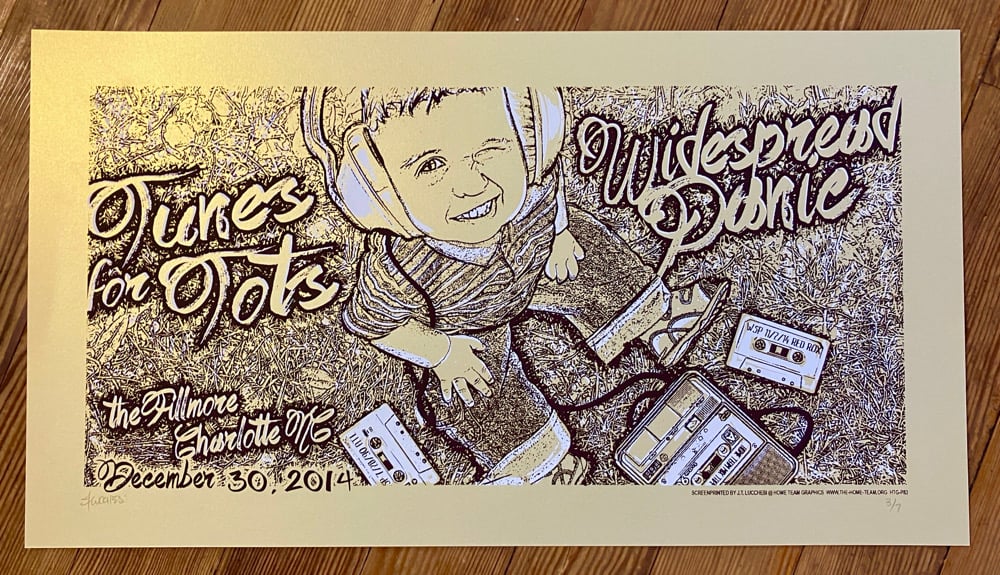 Tunes
for Tots
Widespread
Panic
WSP 11/7/14 RED ROX
the Fillmore
Charlotte NC
December 30, 2014
SCREENPRINTED BY J.T. LUCCHESI @ HOME TEAM GRAPHICS WWW.THE-HOME-TEAM.ORG HTG-P83
3/7